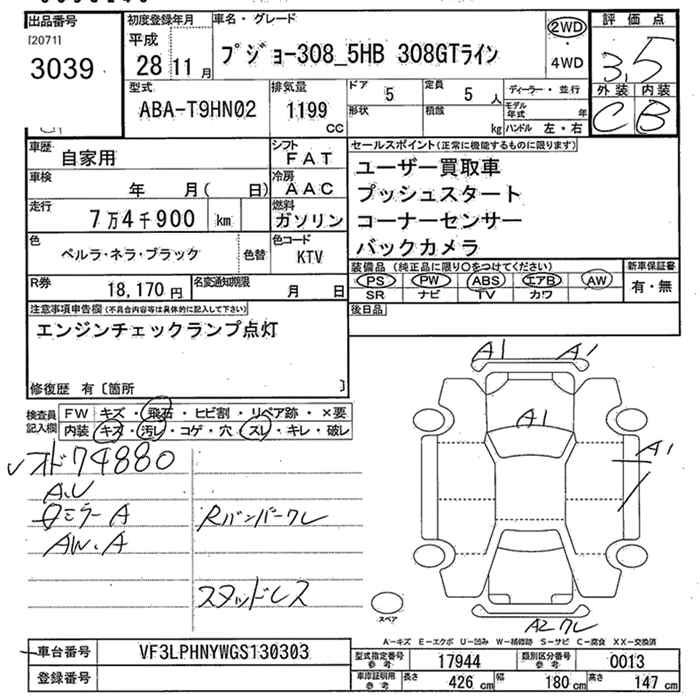 出品番号
[2071]
3039
初度登録年月
平成
28 11 月
車名・グレード
プジョー308_5HB 308GTライン
2WD
・
4WD
評価点
3.5
外装 内装
C B
型式
ABA-T9HN02
排気量
1199
CC
ドア 5
定員 5 人
形状
積載 kg
ディーラー・並行
モデル年式 年
ハンドル 左・右
車歴
自家用
シフト
FAT
車検
年 月( 日)
冷房
AAC
走行
7万4千900 km
燃料
ガソリン
色
ペルラ・ネラ・ブラック
色替
色コード
KTV
R券
18,170 円
名変通知期限
月 日
セールスポイント(正常に機能するものに限ります)
ユーザー買取車
プッシュスタート
コーナーセンサー
バックカメラ
装備品 (純正品に限り○をつけてください)
PS PW ABS エアB AW
SR ナビ TV カワ
新車保証書
有・無
後日品
注意事項申告欄(不具合内容等は具体的に記入して下さい)
エンジンチェックランプ点灯
修復歴 有〔箇所 〕
検査員記入欄
FW キズ・飛石・ヒビ割・リペア跡・×要
内装 キズ・汚レ・コゲ・穴・スレ・キレ・破レ
オド74880
A.U
ロミラーA
AW.A
Rバンパークレ
スタッドレス
A1 A1
A1
A1
A2クレ
スペア
A-キズ E-エクボ U-凹み W-補修跡 S-サビ C-腐食 XX-交換済
車台番号
VF3LPHNYWGS130303
登録番号
型式指定番号 参考
17944
類別区分番号 参考
0013
車庫証明用 参考
長さ 426 cm
幅 180 cm
高さ 147 cm